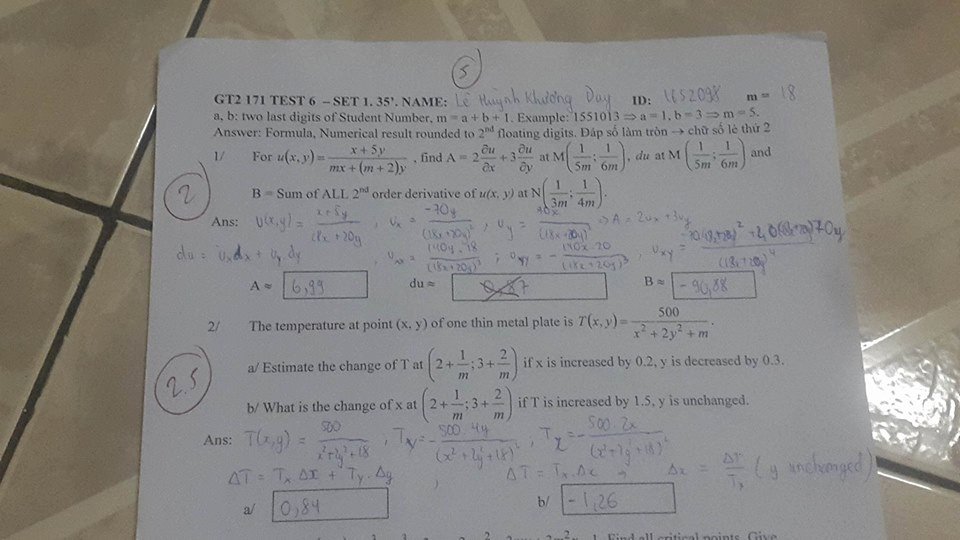 5
GT2 171 TEST 6 – SET 1. 35'. NAME: Lê Huỳnh Khương Duy ID: 1652098 m = 18
a, b: two last digits of Student Number, m = a + b + 1. Example: 1551013 ⇒ a = 1, b = 3 ⇒ m = 5.
Answer: Formula, Numerical result rounded to 2nd floating digits. Đáp số làm tròn → chữ số lẻ thứ 2
1/ For u(x, y) = (x + 5y)/(mx + (m + 2)y), find A = 2 ∂u/∂x + 3 ∂u/∂y at M(1/5m; 1/6m), du at M(1/5m; 1/6m) and
2
B = Sum of ALL 2nd order derivative of u(x, y) at N(1/3m; 1/4m).
Ans: U(x,y) = (x+5y)/(18x+20y), Ux = -70y/(18x+20y)², Uy = 70x/(18x+20y)² ⇒ A = 2ux + 3uy
du = Uxdx + Uy dy, Uxx = 140y.18/(18x+20y)³; Uyy = - 140x.20/(18x+20y)³, Uxy =
A ≈ 6,99 du ≈ 0,87 B ≈ -90,88
2/ The temperature at point (x, y) of one thin metal plate is T(x, y) = 500/(x² + 2y² + m).
a/ Estimate the change of T at (2 + 1/m; 3 + 2/m) if x is increased by 0.2, y is decreased by 0.3.
2.5
b/ What is the change of x at (2 + 1/m; 3 + 2/m) if T is increased by 1.5, y is unchanged.
Ans: T(x,y) = 500/(x²+2y²+18), Ty = - 500.4y/(x²+2y²+18)², Tx = - 500.2x/(x²+2y²+18)²
ΔT = Tx Δx + Ty. Δy, ΔT = Tx. Δx, Δx = ΔT/Tx (y unchanged)
a/ 0,84 b/ -1,26
1. Find all critical points. Give